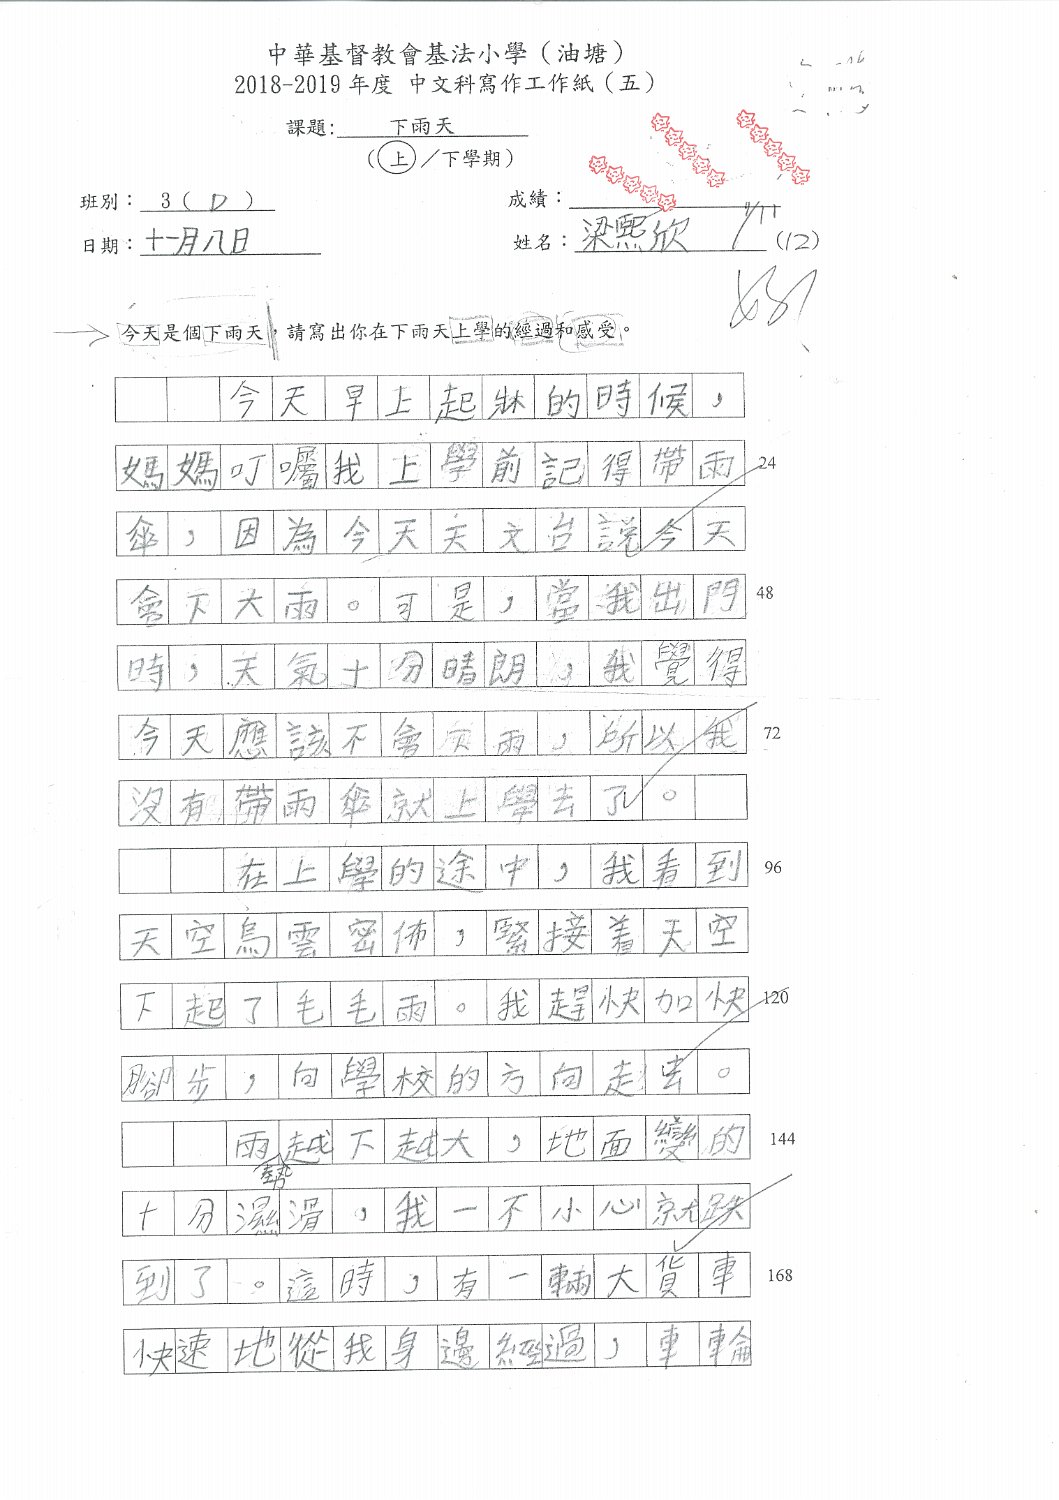 中華基督教會基法小學（油塘）
2018-2019 年度 中文科寫作工作紙（五）
課題: 下雨天
（上／下學期）
班別： 3（ D ） 成績：
日期：十一月八日 姓名：梁熙欣 (12)
今天是個下雨天，請寫出你在下雨天上學的經過和感受。
今天早上起牀的時候，
媽媽叮囑我上學前記得帶雨 24
傘，因為今天天文台說今天
會下大雨。可是，當我出門 48
時，天氣十分晴朗，我覺得
今天應該不會下雨，所以我 72
沒有帶雨傘就上學去了。
在上學的途中，我看到 96
天空烏雲密佈，緊接着天空
下起了毛毛雨。我趕快加快 120
腳步，向學校的方向走去。
雨勢越下越大，地面變的 144
十分濕滑，我一不小心就跌
到了。這時，有一輛大貨車 168
快速地從我身邊經過，車輪